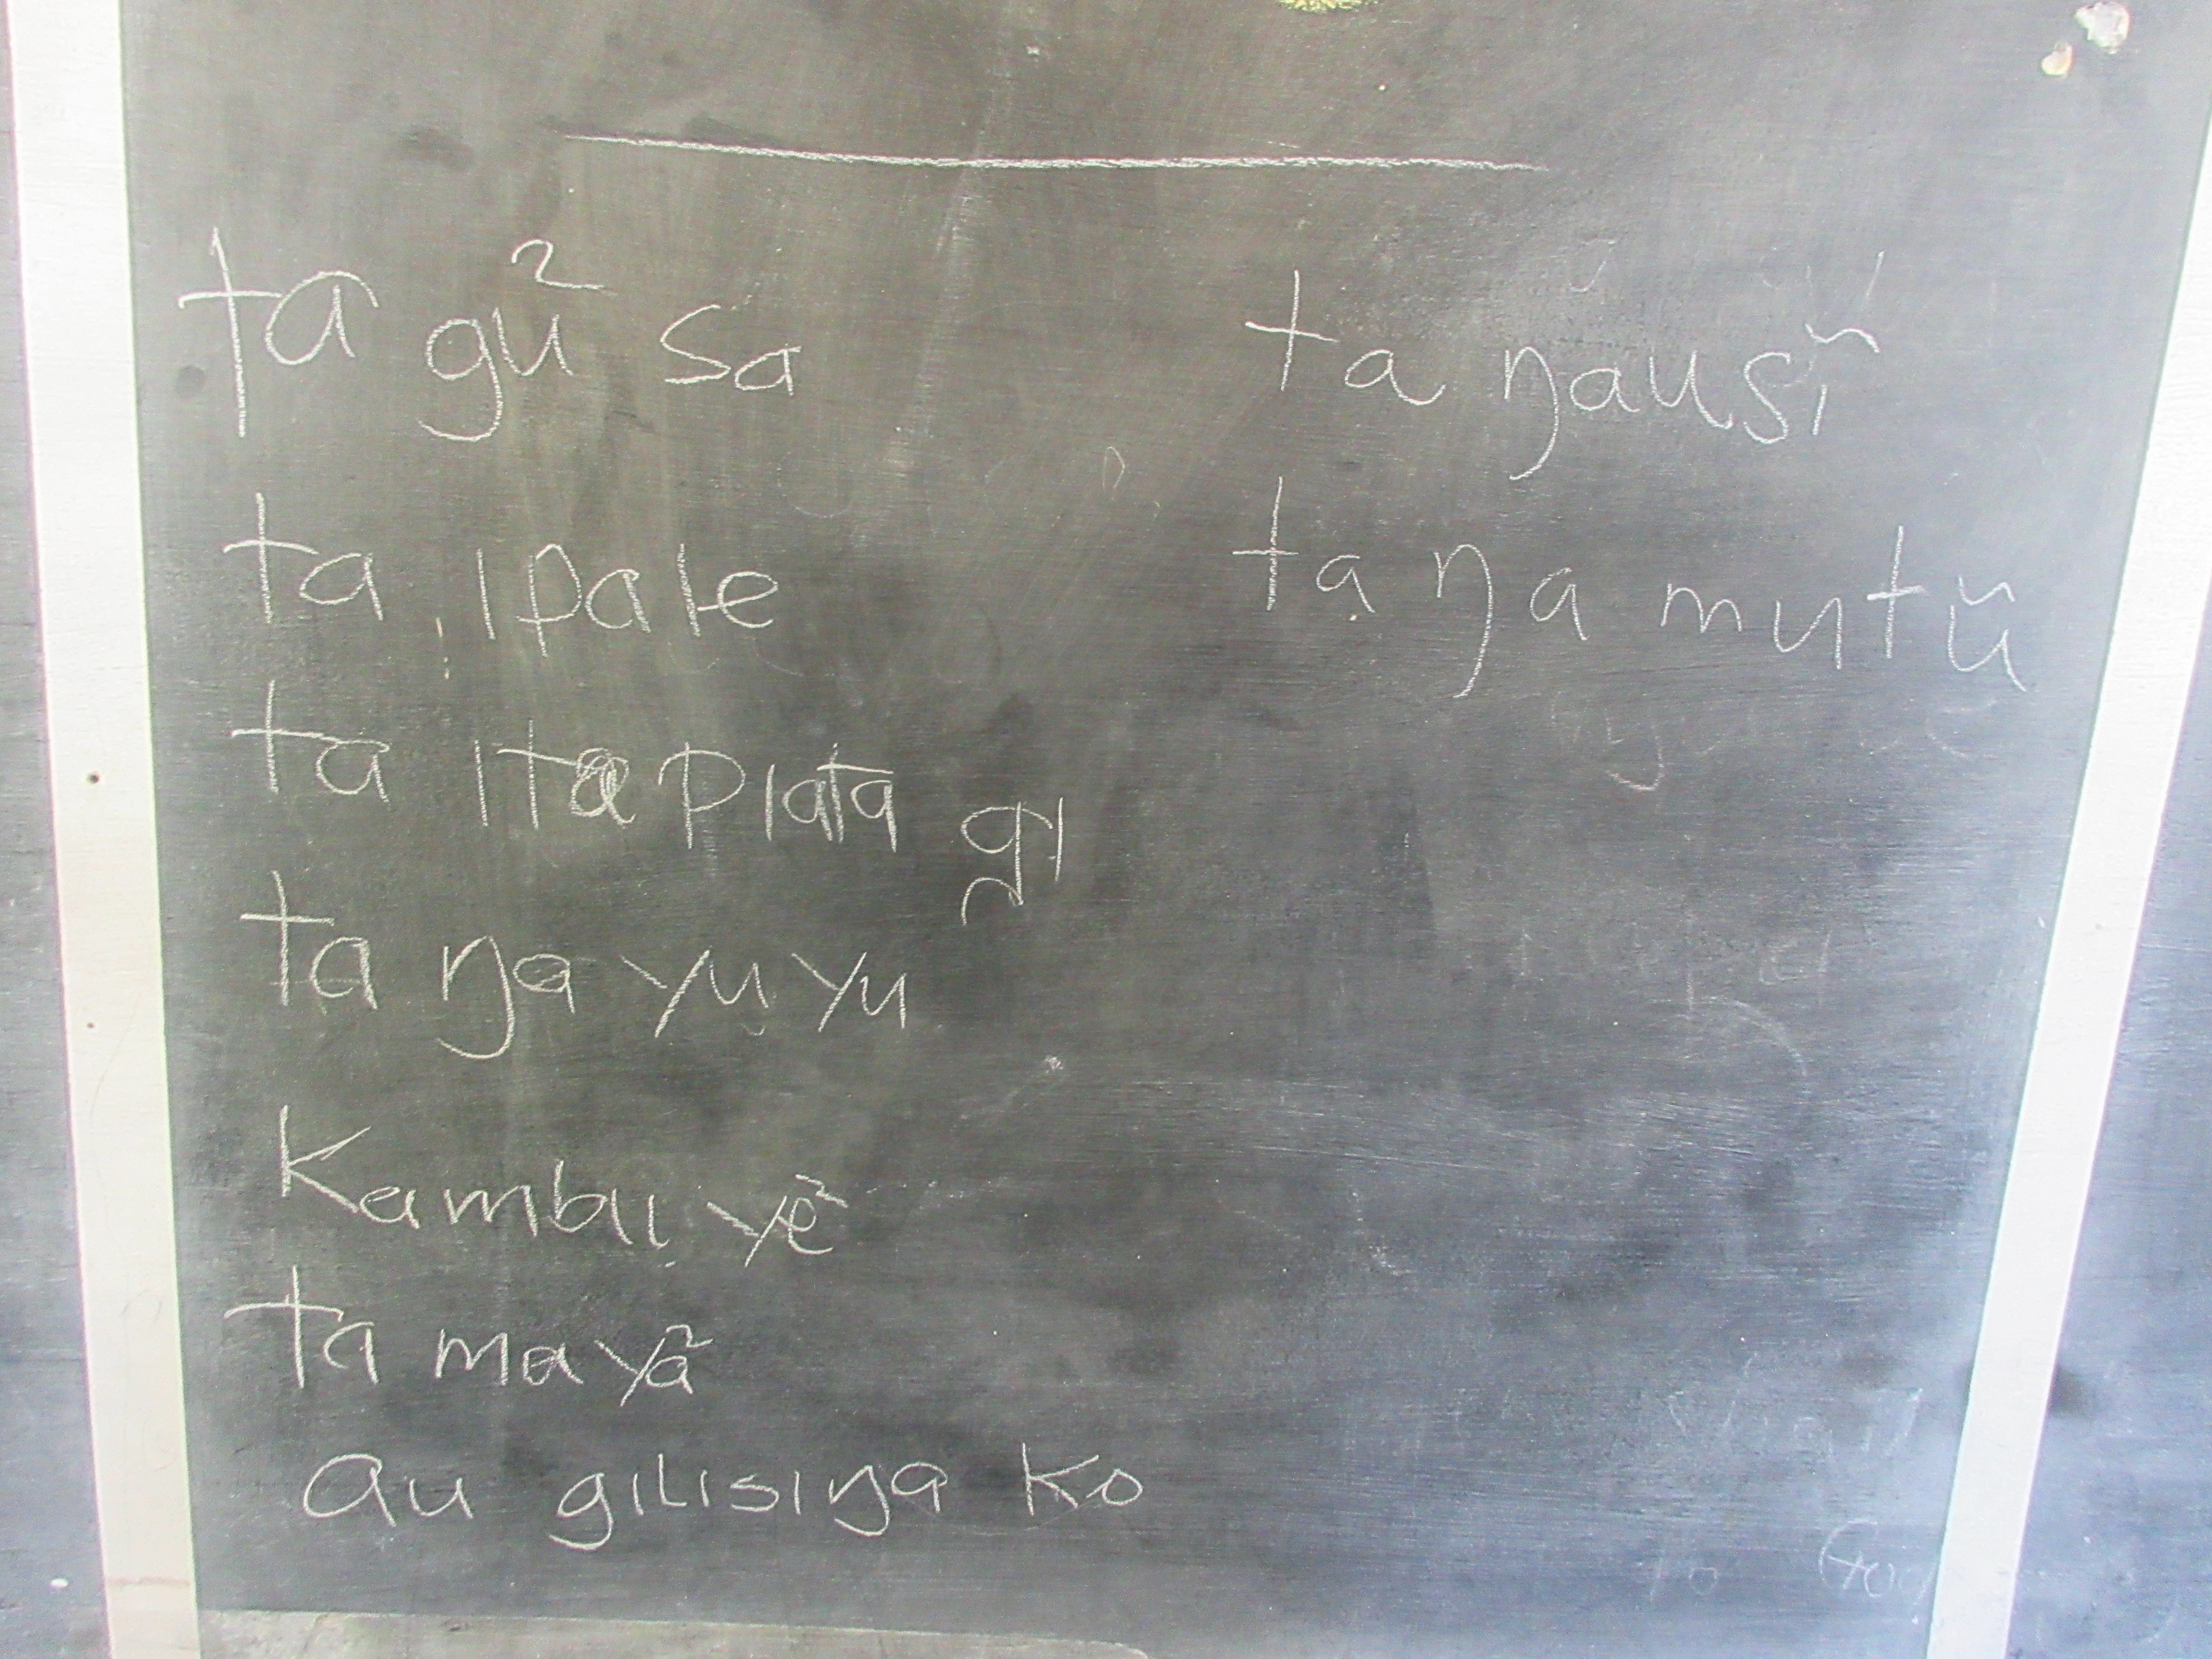 ta gũ sa
ta ipale
ta ita plata gi
ta ŋa yu yu
Kambu yẽ
ta ma yã
au gilisiŋa ko
ta ŋausĩ
ta ŋa mutũ